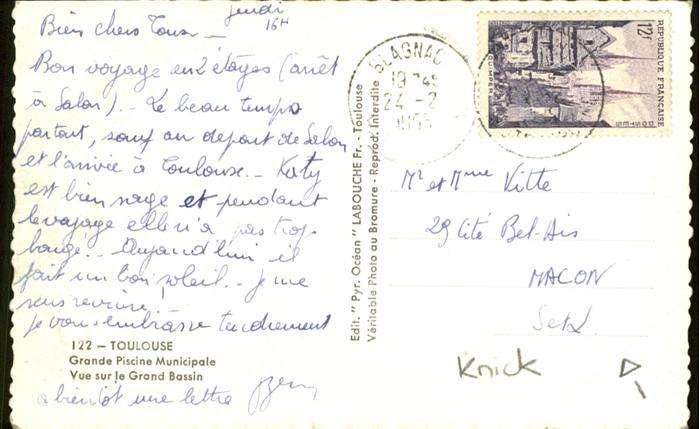 jeudi
16H
Bien chers Tous —
Bon voyage en 2 étapes (arrêt
à Salon). - Le beau temps
partout, sauf au départ de Salon
et l'arrivée à Toulouse. - Katy
est bien sage et pendant
le voyage elle n'a pas trop
bougé. - Aujourd'hui il
fait un bon soleil. - je me
sens revivre!
je vous embrasse tendrement
122 — TOULOUSE
Grande Piscine Municipale
Vue sur le Grand Bassin
à bientôt une lettre
Edit. " Pyr. Océan " LABOUCHE Fr. - Toulouse
Véritable Photo au Bromure - Reprod. Interdite
BLAGNAC
24 - 2
1955
12f
REPUBLIQUE FRANÇAISE
POSTES
Mr et Mme Vitte
29 Cité Bel-Air
MACON
S et L
Knick